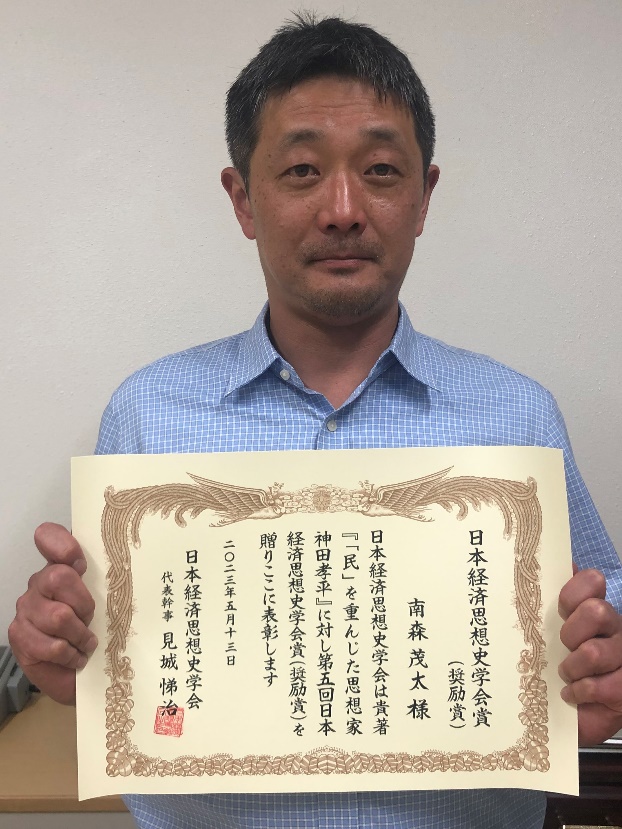 日本経済思想史学会賞
（奨励賞）
南森茂太様
日本経済思想史学会は貴著
『「民」を重んじた思想家
神田孝平』に対し第五回日本
経済思想史学会賞（奨励賞）を
贈りここに表彰します
二〇二三年五月十三日
日本経済思想史学会
代表幹事 見城悌治